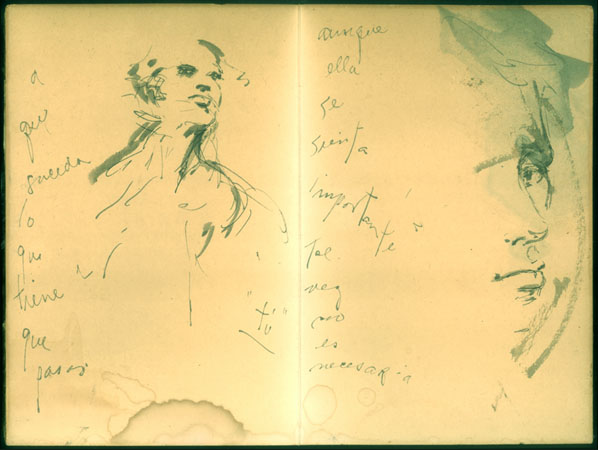 a
que
suceda
lo
que
tiene
que
pasar
"tú"
aunque
ella
se
sienta
importante
tal
vez
no
es
necesaria